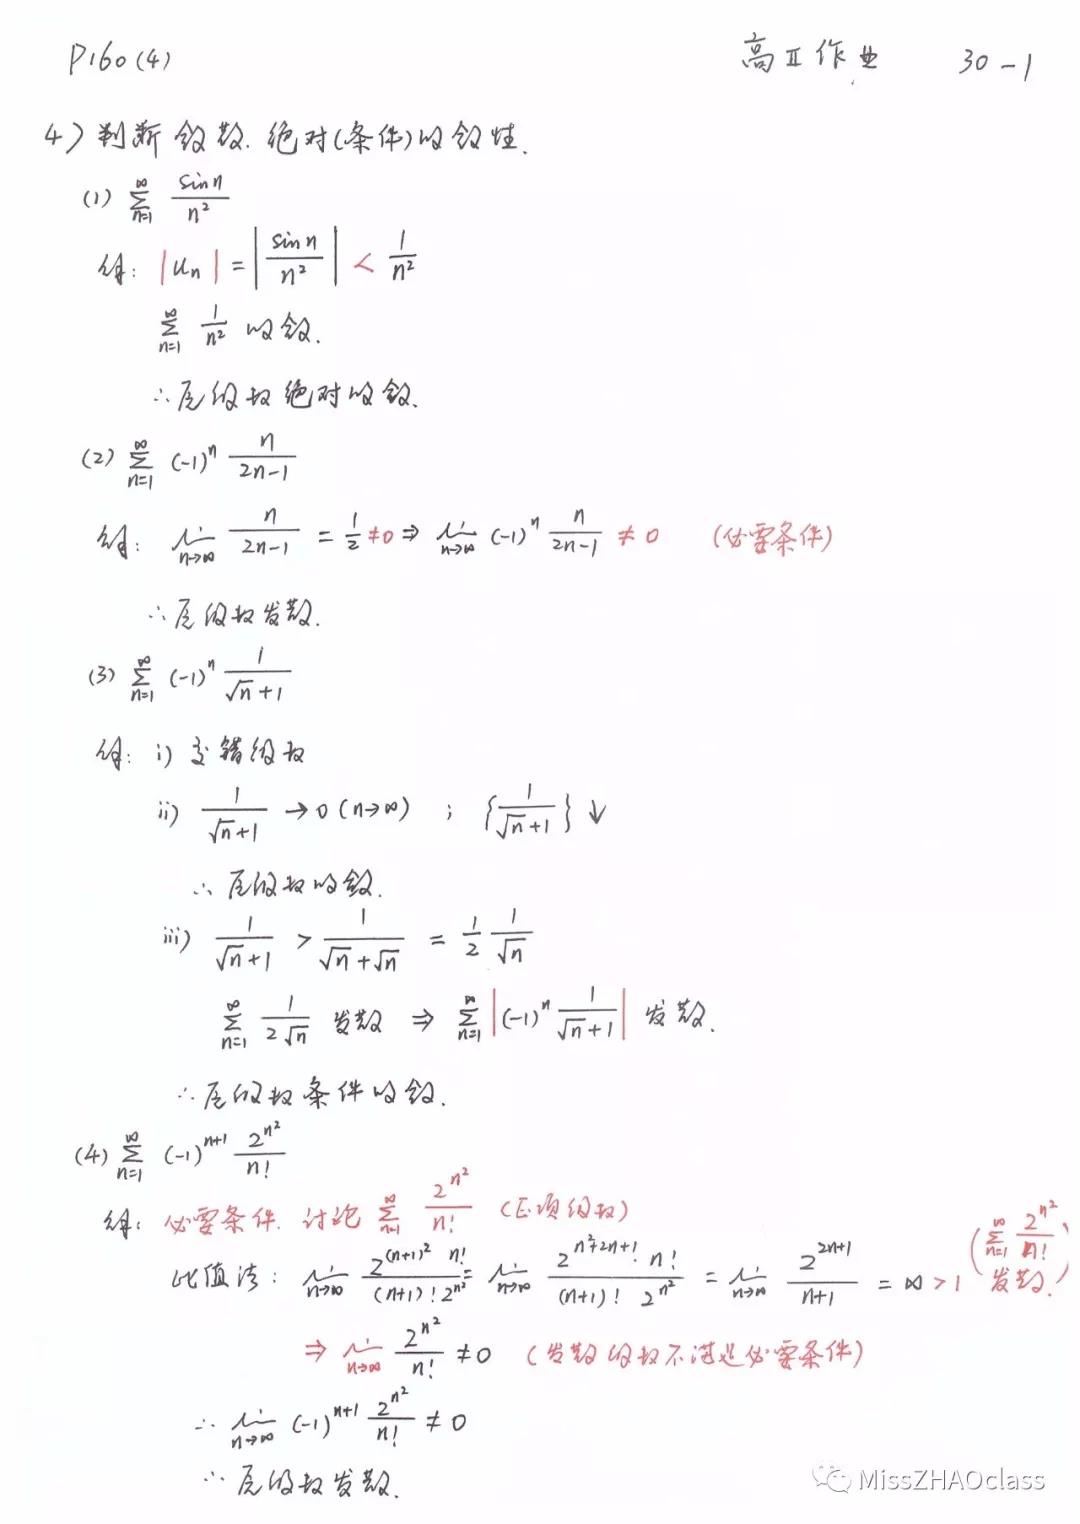 P160(4) 高Ⅱ作业 30-1
4) 判断敛散.绝对(条件)收敛性.
(1) ∑_{n=1}^{∞} sin n / n²
解: |uₙ| = |sin n / n²| < 1/n²
∑_{n=1}^{∞} 1/n² 收敛.
∴原级数绝对收敛.
(2) ∑_{n=1}^{∞} (-1)ⁿ n/(2n-1)
解: lim_{n→∞} n/(2n-1) = 1/2 ≠0 ⇒ lim_{n→∞} (-1)ⁿ n/(2n-1) ≠ 0 (必要条件)
∴原级数发散.
(3) ∑_{n=1}^{∞} (-1)ⁿ 1/(√n+1)
解: i) 交错级数
ii) 1/(√n+1) → 0 (n→∞) ; {1/(√n+1)} ↓
∴ 原级数收敛.
iii) 1/(√n+1) > 1/(√n+√n) = 1/2 1/√n
∑_{n=1}^{∞} 1/(2√n) 发散 ⇒ ∑_{n=1}^{∞} |(-1)ⁿ 1/(√n+1)| 发散.
∴原级数条件收敛.
(4) ∑_{n=1}^{∞} (-1)^{n+1} 2^{n²}/n!
解: 必要条件. 讨论 ∑_{n=1}^{∞} 2^{n²}/n! (正项级数)
比值法: lim_{n→∞} 2^{(n+1)²} n! / ((n+1)! 2^{n²}) = lim_{n→∞} 2^{n²+2n+1} · n! / ((n+1)! 2^{n²}) = lim_{n→∞} 2^{2n+1}/(n+1) = ∞ > 1 (∑_{n=1}^{∞} 2^{n²}/n! 发散.)
⇒ lim_{n→∞} 2^{n²}/n! ≠ 0 (发散级数不满足必要条件)
∴ lim_{n→∞} (-1)^{n+1} 2^{n²}/n! ≠ 0
∴ 原级数发散.
MissZHAOclass